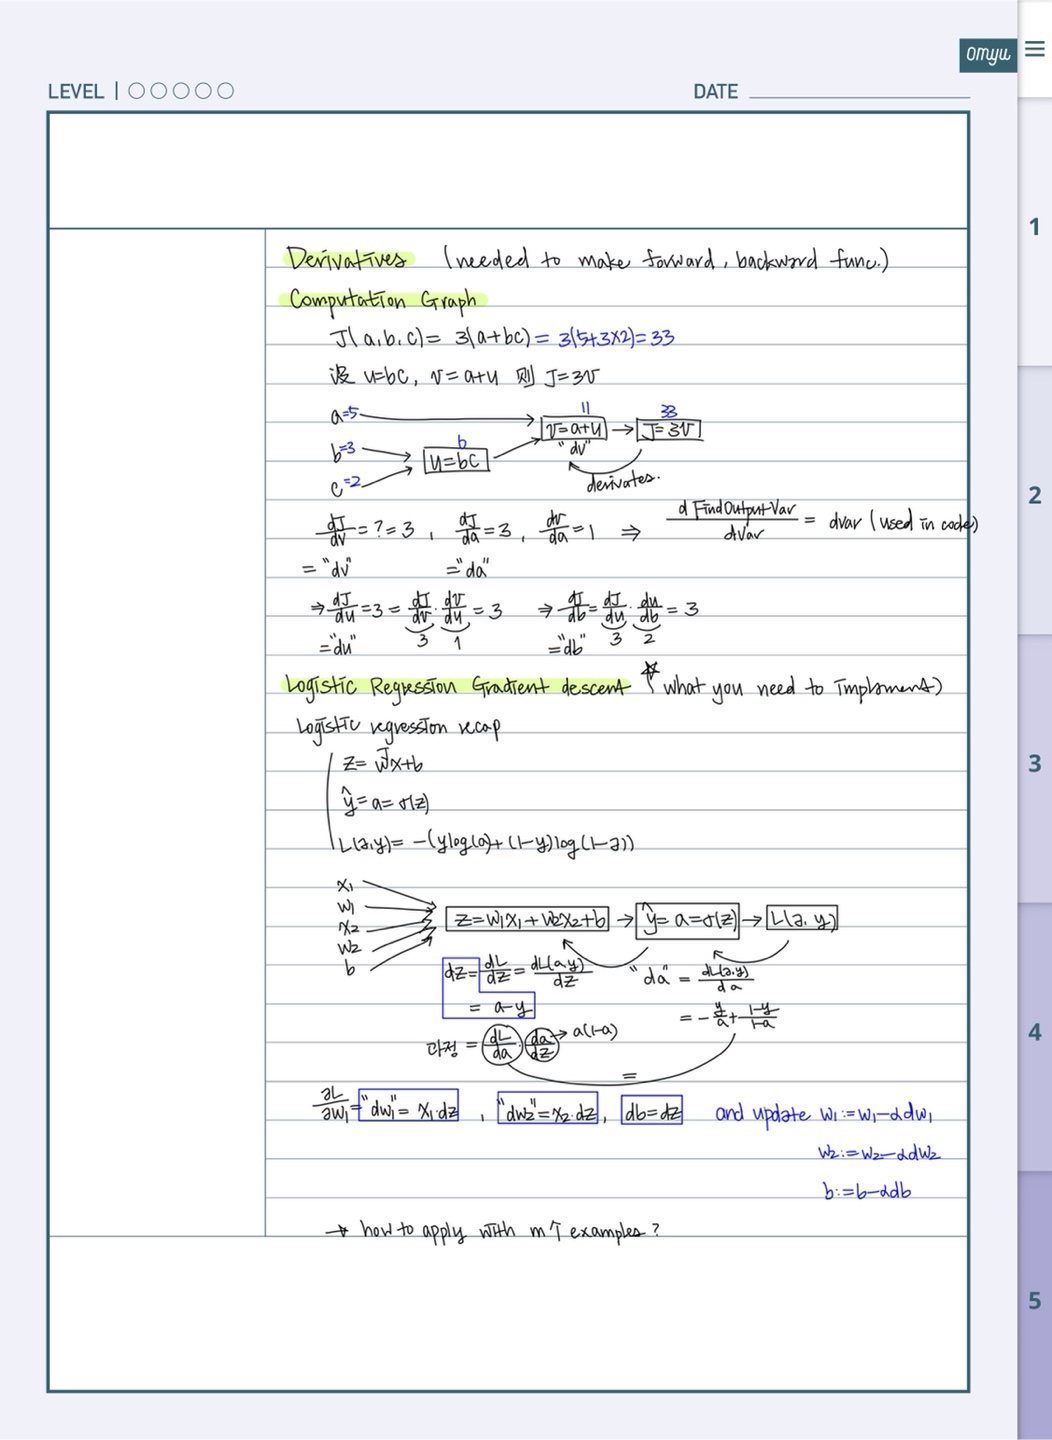 omyu
LEVEL | ○○○○○ DATE
1
2
3
4
5
Derivatives (needed to make forward, backward func.)
Computation Graph
J(a,b,c) = 3(a+bc) = 3(5+3×2)=33
设 u=bc, v=a+u 则 J=3v
a=5
b=3
c=2
6
u=bc
11
v=a+u
"dv"
33
J=3v
derivates.
dJ/dv = ? = 3, dJ/da = 3, dv/da = 1 ⇒ d FindOutputVar/dVar = dvar (used in code)
= "dv" ="da"
⇒ dJ/du = 3 = dJ/dv · dv/du = 3 ⇒ dJ/db = dJ/du · du/db = 3
="du" 3 1 ="db" 3 2
Logistic Regression Gradient descent (what you need to implement)
Logistic regression recap
z = wᵀx+b
ŷ = a = σ(z)
L(a,y) = -(ylog(a)+(1-y)log(1-a))
x1
w1
x2
w2
b
z=w1x1+w2x2+b → ŷ=a=σ(z) → L(a,y)
dz = dL/dz = dL(a,y)/dz "da" = dL(a,y)/da
= a-y = -y/a + 1-y/1-a
과정 = dL/da · da/dz → a(1-a)
=
∂L/∂w1 = "dw1" = x1·dz, "dw2" = x2·dz, db=dz and update w1:=w1-αdw1
w2:=w2-αdw2
b:=b-αdb
→ how to apply with m个 examples?